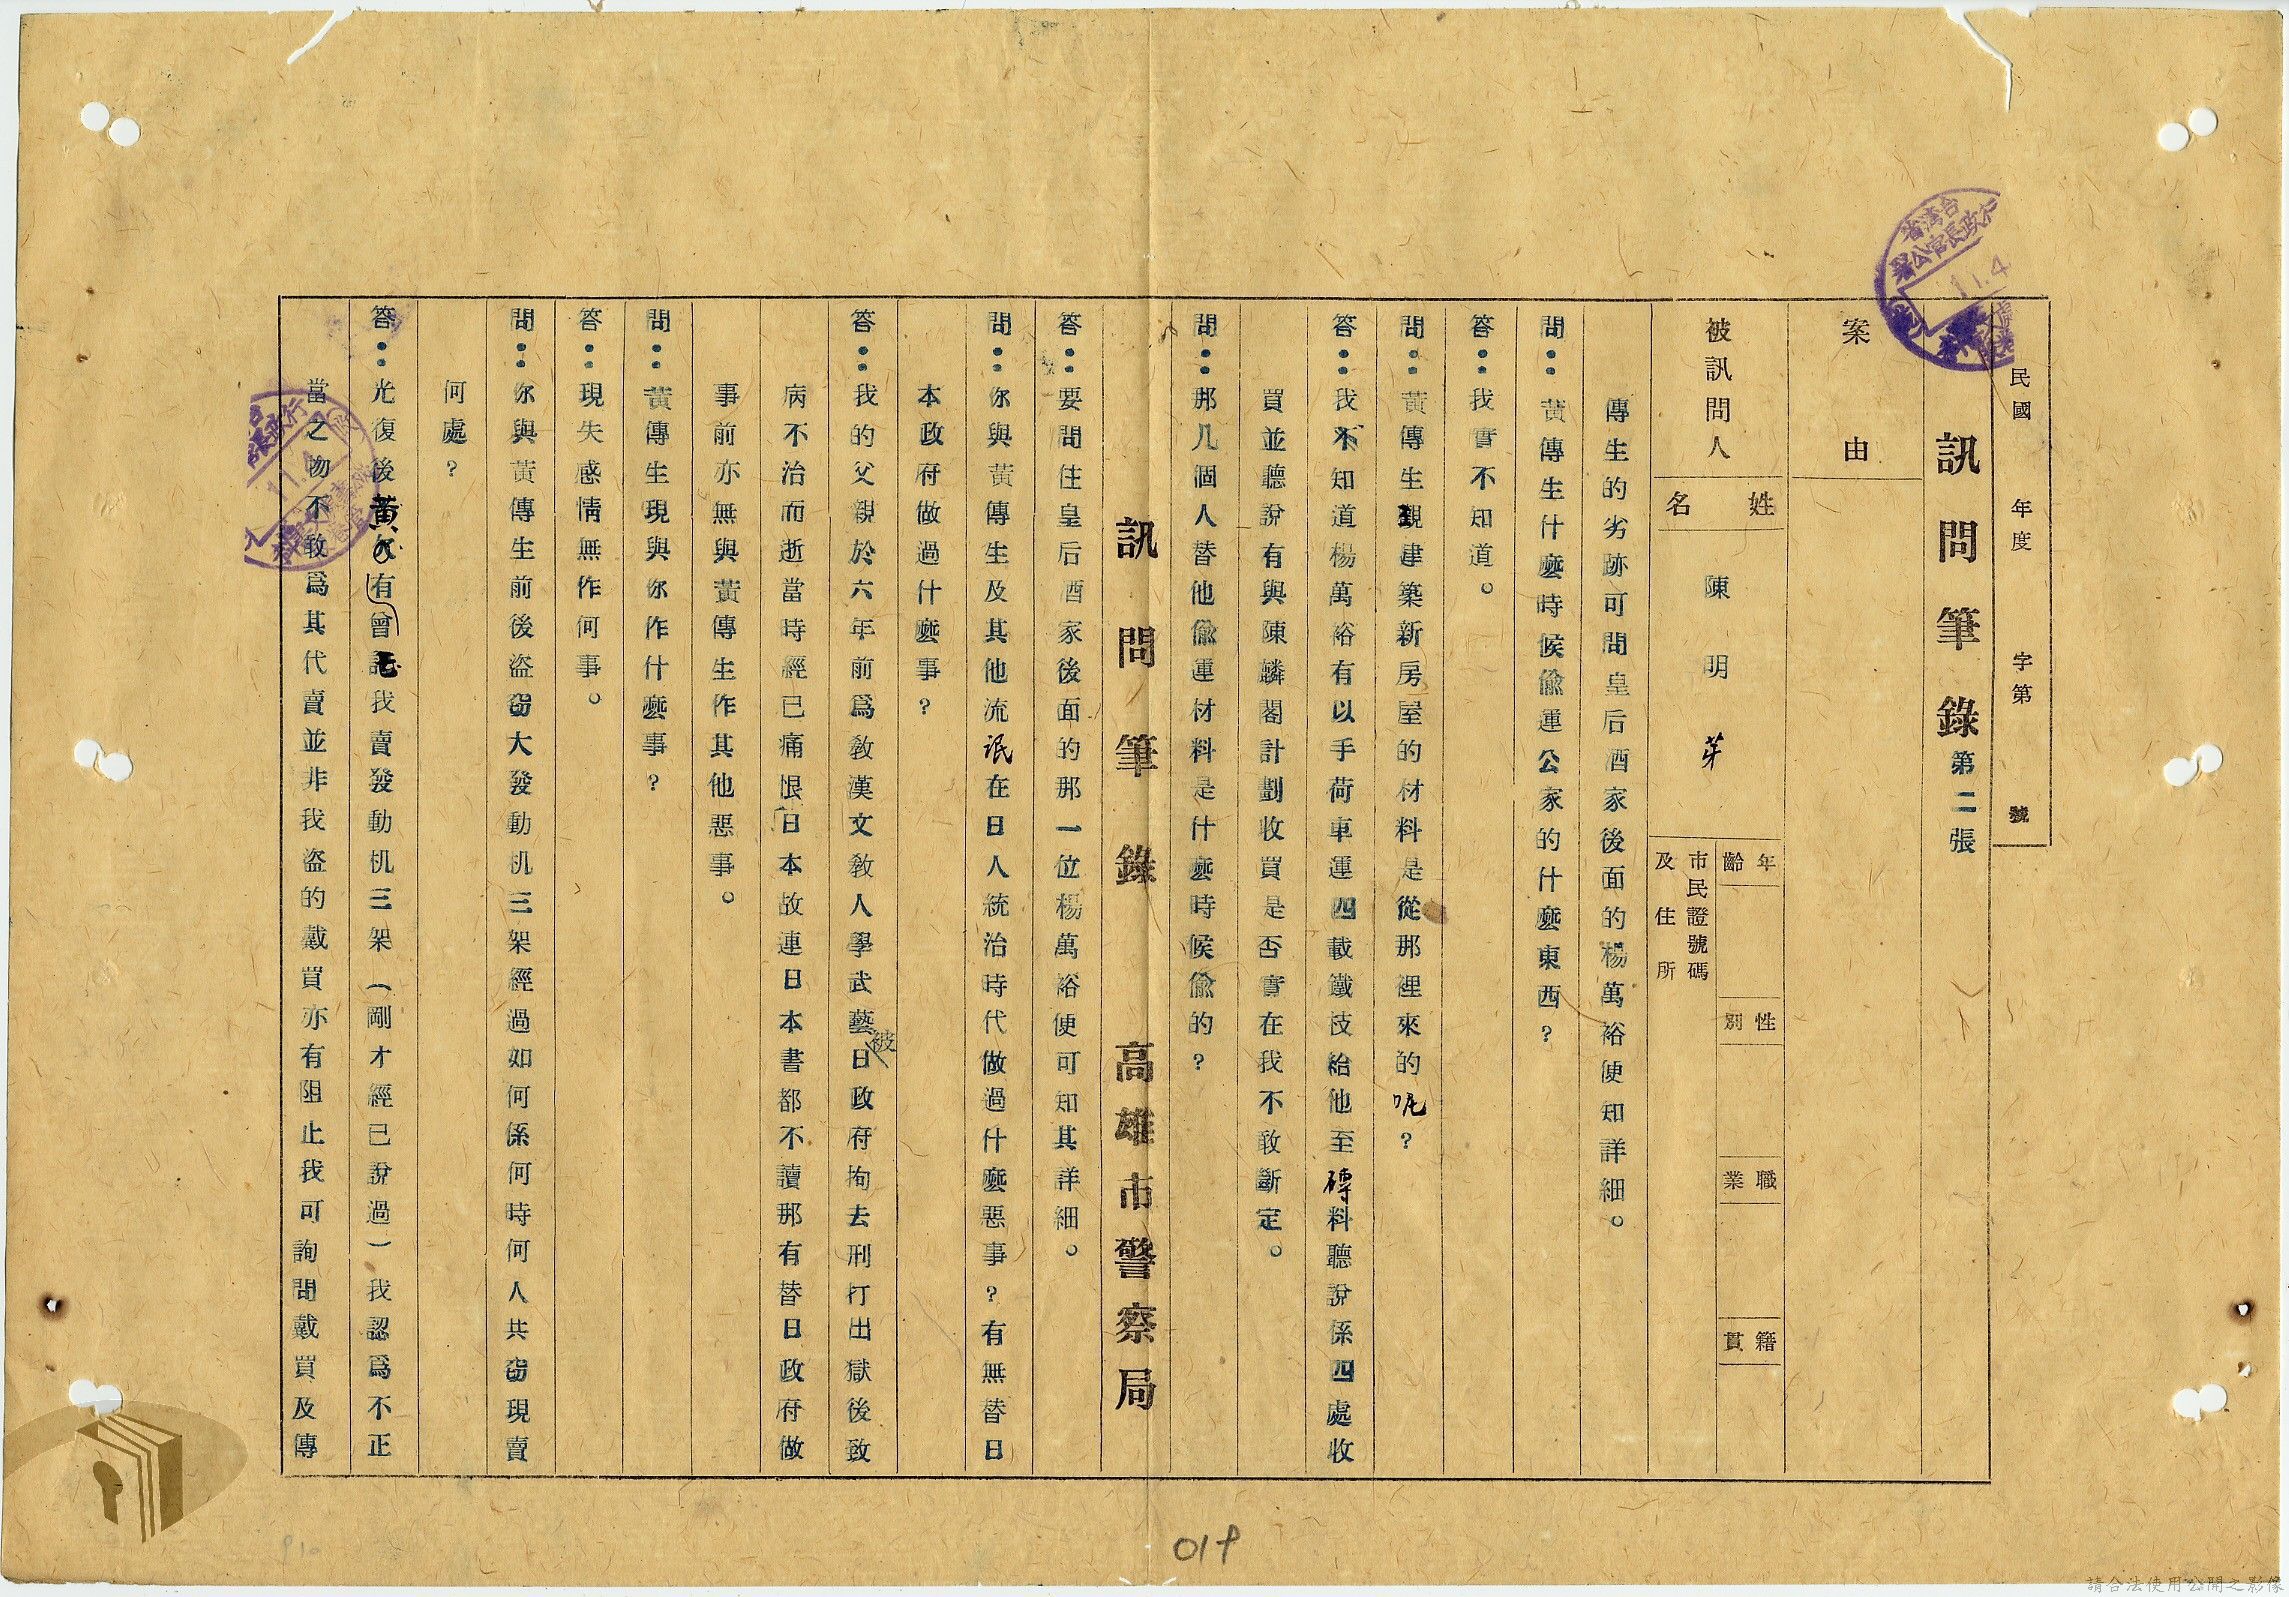 民國 年度 字第 號
訊問筆錄第二張
案由
被訊問人
姓名
陳明芽
年齡
性別
職業
籍貫
市民證號碼
及住所
傳生的劣跡可問皇后酒家後面的楊萬裕便知詳細。
問：黃傳生什麼時候偸運公家的什麼東西？
答：我實不知道。
問：黃傳生現建築新房屋的材料是從那裡來的呢？
答：我不知道楊萬裕有以手荷車運四載鐵枝給他至磚料聽說係四處收
買並聽說有與陳麟閣計劃收買是否實在我不敢斷定。
問：那几個人替他偸運材料是什麼時候偸的？
訊問筆錄 高雄市警察局
答：要問住皇后酒家後面的那一位楊萬裕便可知其詳細。
問：你與黃傳生及其他流氓在日人統治時代做過什麼惡事？有無替日
本政府做過什麼事？
答：我的父親於六年前爲敎漢文敎人學武藝被日政府拘去刑打出獄後致
病不治而逝當時經已痛恨日本故連日本書都不讀那有替日政府做
事前亦無與黃傳生作其他惡事。
問：黃傳生現與你作什麼事？
答：現失感情無作何事。
問：你與黃傳生前後盜窃大發動机三架經過如何係何時何人共窃現賣
何處？
答：光復後黃有曾託我賣發動机三架（剛才經已說過）我認爲不正
當之物不敢爲其代賣並非我盜的戴買亦有阻止我可詢問戴買及傳
台灣省行政長官公署
11.4
11.4
019
請合法使用公開之影像